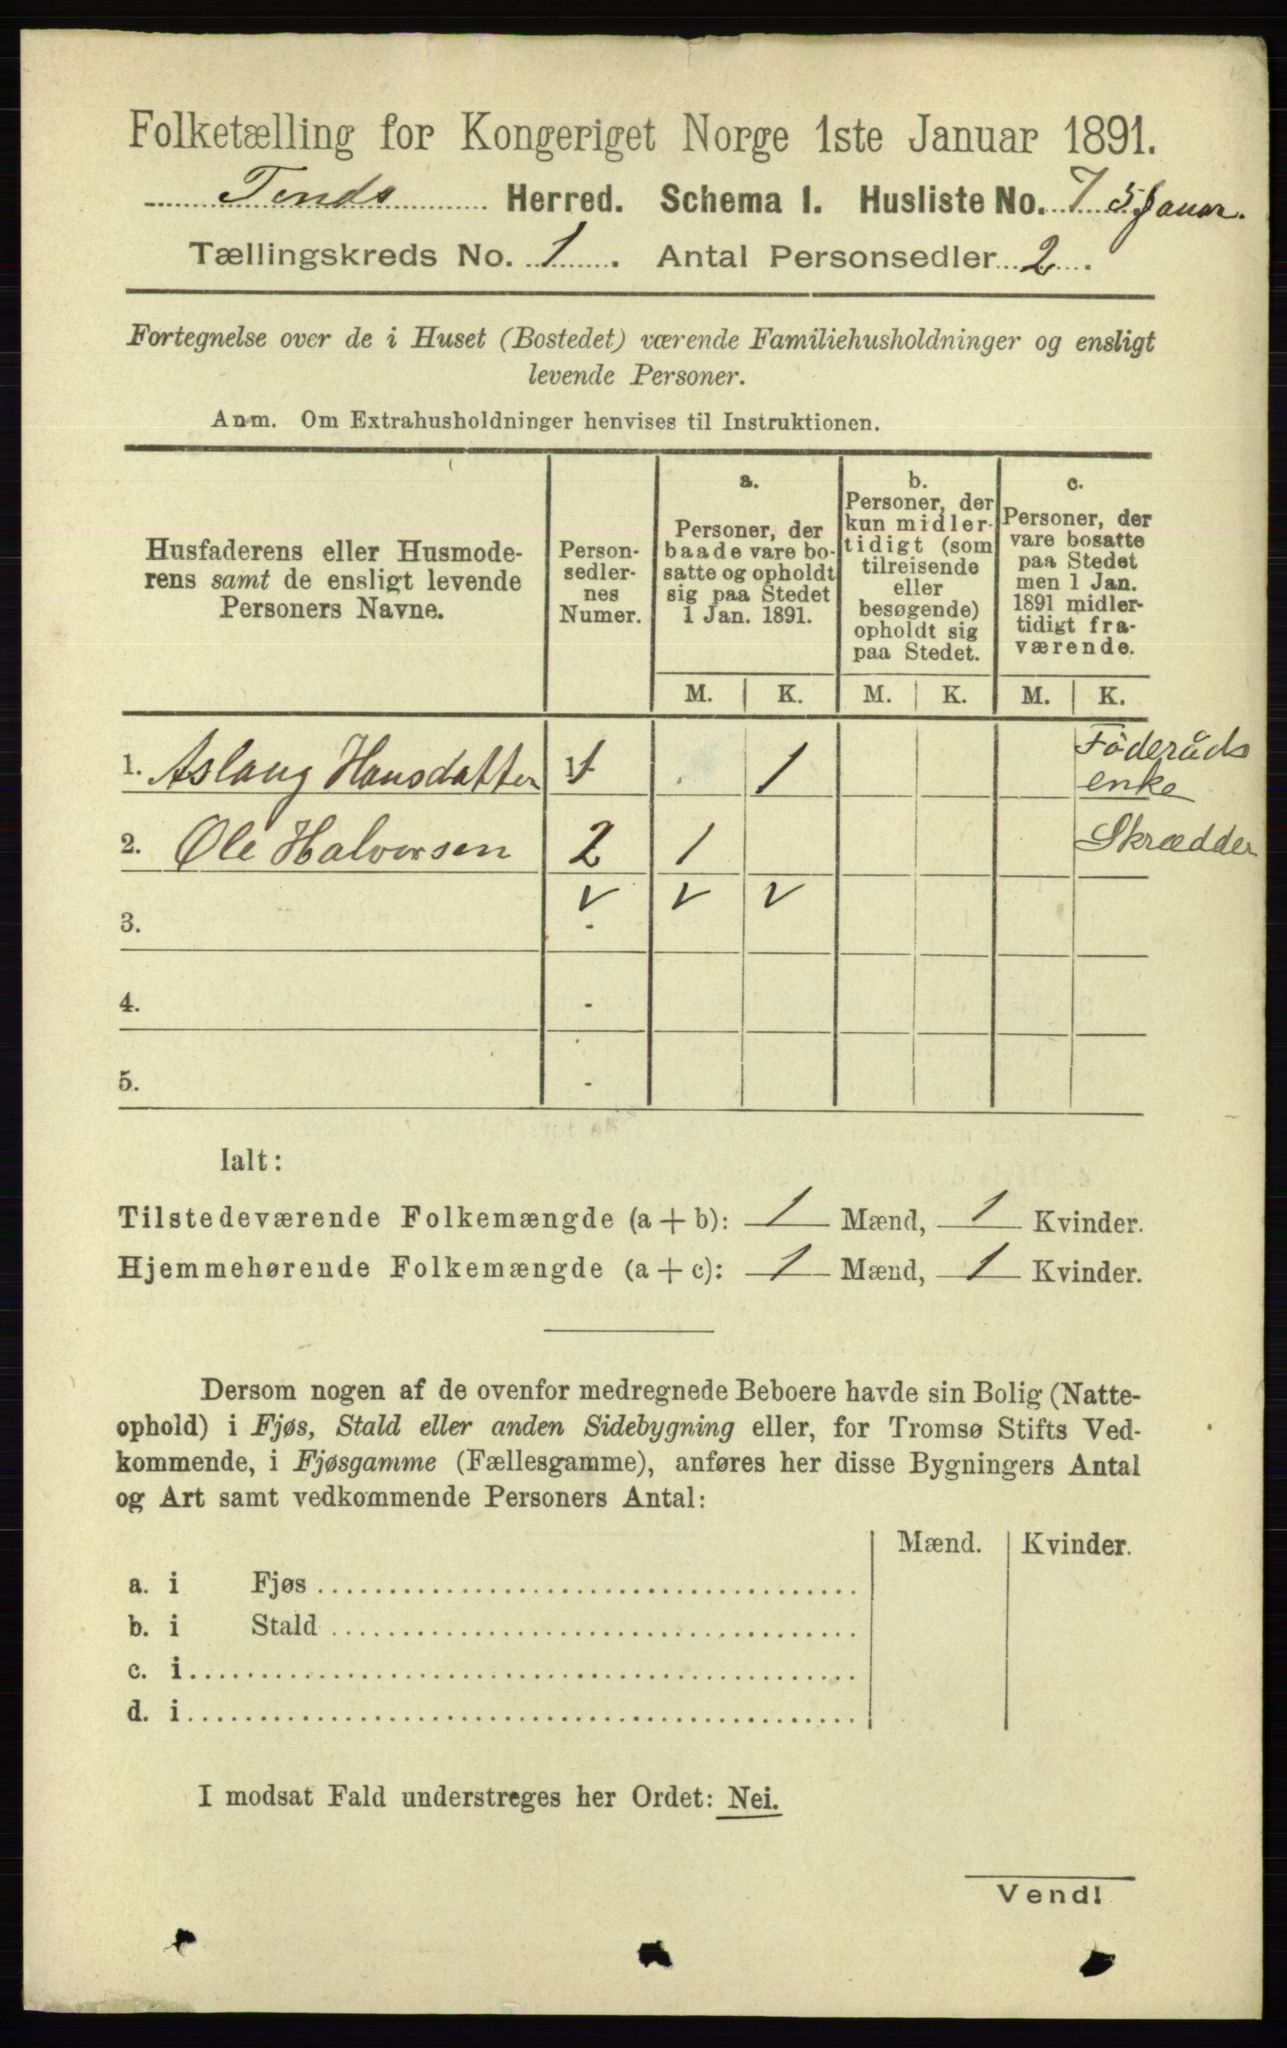 Folketælling for Kongeriget Norge 1ste Januar 1891.
Tinds Herred. Schema 1. Husliste No. 7 5 Januar.
Tællingskreds No. 1. Antal Personsedler 2.
Fortegnelse over de i Huset (Bostedet) værende Familiehusholdninger og ensligt
levende Personer.
Anm. Om Extrahusholdninger henvises til Instruktionen.
Husfaderens eller Husmode-
rens samt de ensligt levende
Personers Navne.
Person-
sedler-
nes
Numer.
a.
Personer, der
baade vare bo-
satte og opholdt
sig paa Stedet
1 Jan. 1891.
b.
Personer, der
kun midler-
tidigt (som
tilreisende
eller
besøgende)
opholdt sig
paa Stedet.
c.
Personer, der
vare bosatte
paa Stedet
men 1 Jan.
1891 midler-
tidigt fra-
værende.
M. K. M. K. M. K.
1. Aslaug Hansdatter 1 1 Föderåds
enke
2. Ole Halvorsen 2 1 Skrædder
v v v
3. -
4. -
5. -
Ialt:
Tilstedeværende Folkemængde (a + b): 1 Mænd, 1 Kvinder.
Hjemmehørende Folkemængde (a + c): 1 Mænd, 1 Kvinder.
Dersom nogen af de ovenfor medregnede Beboere havde sin Bolig (Natte-
ophold) i Fjøs, Stald eller anden Sidebygning eller, for Tromsø Stifts Ved-
kommende, i Fjøsgamme (Fællesgamme), anføres her disse Bygningers Antal
og Art samt vedkommende Personers Antal:
Mænd. Kvinder.
a. i Fjøs
b. i Stald
c. i
d. i
I modsat Fald understreges her Ordet: Nei.
Vend!